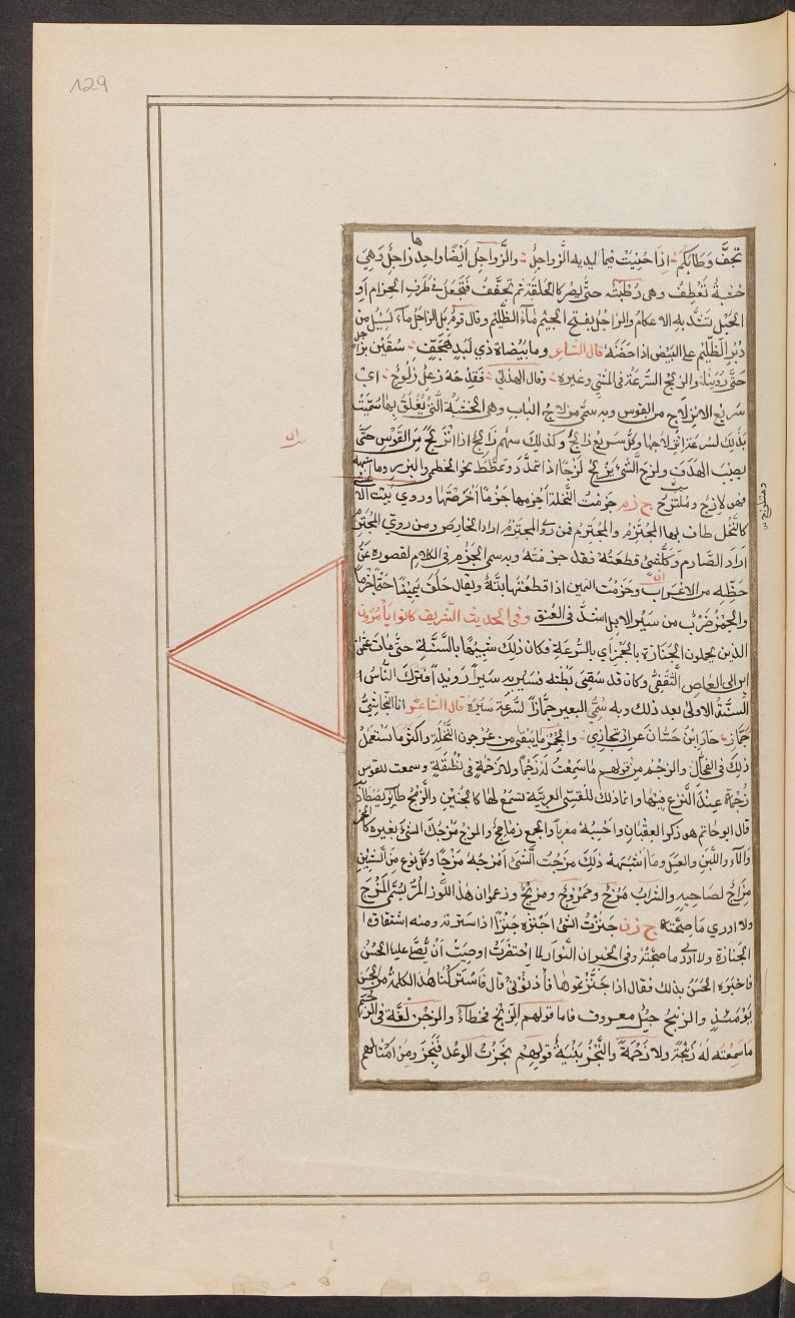 129
تجف وطابكم اذا حنيت فيما لديه الزواجل والزواجل ايضا واحدها زاجل وهي
خشبة تعطف وهي رطبة حتى يصير كالحلقة ثم تجفف فتجعل في طرف الحزام او
الحبل تشد به الاعكام والزاجل بفتح الجيم ماء الظليم وقال قوم بل الزاجل ماء يسيل من
دبر الظليم على البيض اذا حضنه قال الشاعر وما بيضاة ذي لبد هجف سقين بزاجل
حتى روينا والزلج السرعة في المشي وغيره وقال الهذلي فقدحه زعل زلوج اي
سريع الانزلاج من القوس وبه سمي مزلاج الباب وهي الخشبة التي يغلق بها سميت
بذلك لسرعة انزلاجها وكل سريع زالج وكذلك سهم زالج اذا انزلج من القوس حتى
يصيب الهدف ولزج الشيء يلزج لزجا اذا تمدد وتمطط نحو الخطمي والبزر وما اشبهه
فهو لازج ومتلزج ج ز م جزمت النخلة اجزمها جزما اخرصتها وروي بيت الا
كالنخل طاف بها المجتزم والمجترم فمن روى المجتزم اراد الخارص ومن روى المجترم
اراد الصارم وكل شيء قطعته فقد جزمته وبه سمي الجزم في الكلام لقصوره عن
حظه من الاعراب وجزمت اليمين اذا قطعتها بتة ويقال حلف يمينا حتما جزما
والجمز ضرب من سير الابل اشد في العنق وفي الحديث الشريف كانوا يأمرون
الذين يحملون الجنازة بالجمزي اي بالسرعة فكان ذلك شبيها بالسنة حتى مات عثمن
ابن ابي العاص الثقفي وكان قد سقي بطنه فسير به سيرا رويدا فترك الناس ا
السنة الاولى بعد ذلك وبه سمي البعير جمازا لسرعة سيره قال الشاعر انا النجاشي
جماز حار ابن حسان عن ارتجازي والجمز ما يبقى من عرجون النخلة واكثر ما يستعمل
ذلك في الفحال والزجم من قولهم ما سمعت له زجما ولا زجمة في نطقه وسمعت للقوس
زجمة عند النزع فيها وانما ذلك للقسي العربية تسمع لها كالحنين والزمج طائر يصطاد
قال ابو حاتم هو ذكر العقبان واحسبه معربا والجمع زمامج والمزج مزجك الشيء بغيره كالخمر
والماء واللبن والعسل وما اشبه ذلك مزجت الشيء امزجه مزجا وكل نوع من الشيئين
مزاج لصاحبه والشراب مزج وممزوج ومزيج وزعموا ان هذا اللوز المر يسمى المزج
ولا ادري ما صحته ج ز ن جنزت الشيء اجنزه جنزا اذا سترته ومنه اشتقاق ا
الجنازة ولا ادري ما صحته وفي الخبر ان النوار لما احتضرت اوصيت ان يصلي عليها الحسن
فاخبروا الحسن بذلك فقال اذا جنزتموها فأذنوني قال فاستركنا هذه الكلمة من الحسن
يومئذ والزنج جيل معروف فاما قولهم الزنج فخطاء والزجن لغة في الزجم
ما سمعت له زجنة ولا زجمة والنجز بنية قولهم نجزت الوعد فنجز ومن امثالهم